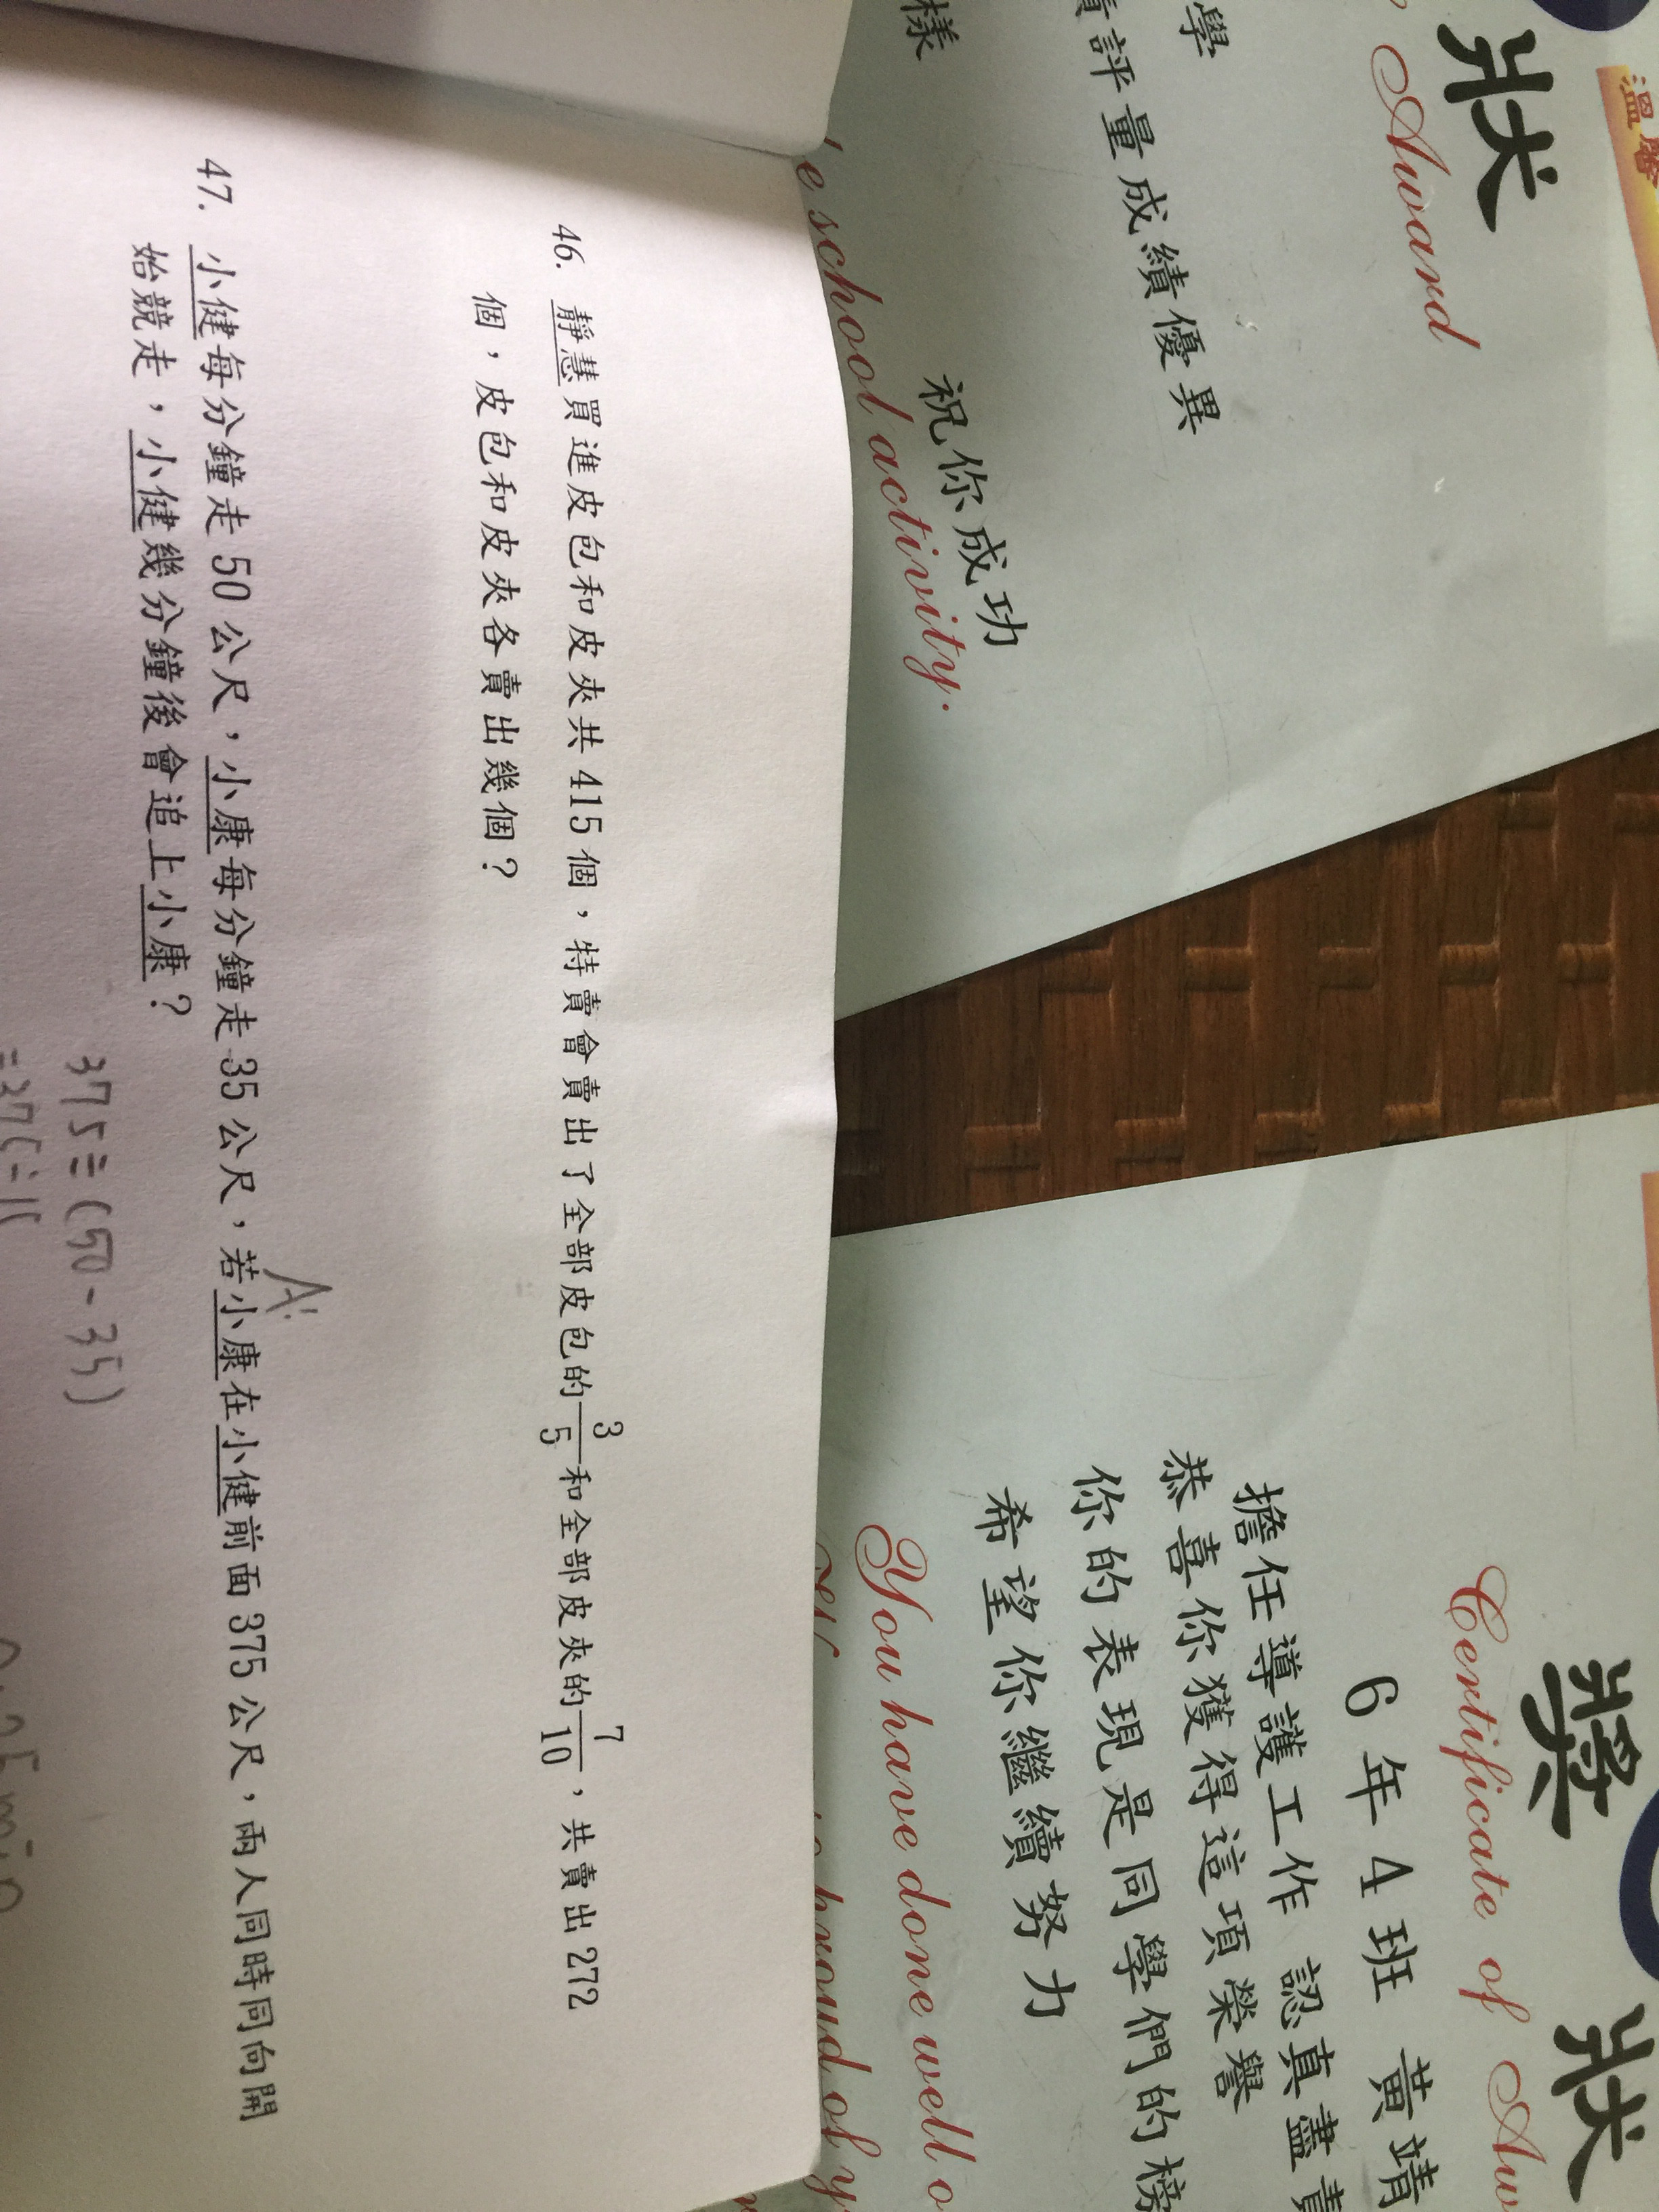 46. 靜慧買進皮包和皮夾共415個，特賣會賣出了全部皮包的3/5和全部皮夾的7/10，共賣出272
個，皮包和皮夾各賣出幾個？
A:
47. 小健每分鐘走50公尺，小康每分鐘走35公尺，若小康在小健前面375公尺，兩人同時同向開
始競走，小健幾分鐘後會追上小康？
375÷(50-35)
狀
Award
學
評量成績優異
樣
祝你成功
school activity.
獎狀
Certificate of
6年4班 黃靖
擔任導護工作 認真盡責
恭喜你獲得這項榮譽
你的表現是同學們的榜
希望你繼續努力
You have done well
proud of